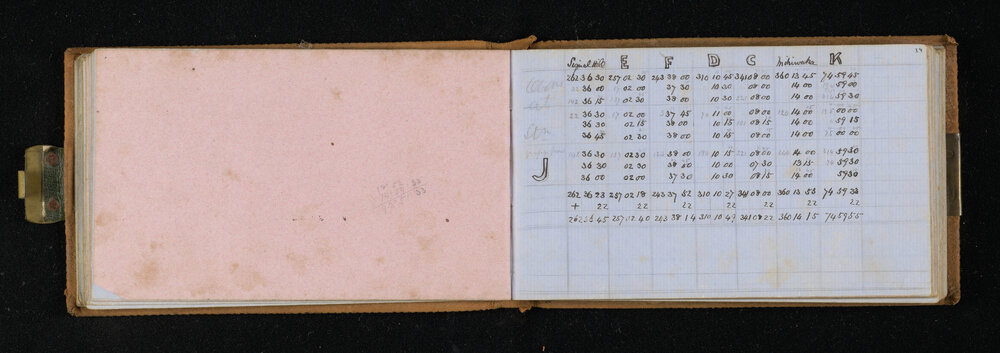 39
Signal Hill E F D C Mohiwaka K
262 36 30 257 02 30 243 38 00 310 10 45 341 08 00 360 13 45 74 59 45
36 00 02 00 37 30 10 30 08 00 14 00 59 00
36 15 02 30 38 00 10 30 08 00 14 00 59 30
36 30 02 00 37 45 11 00 08 00 14 00 00 00
36 30 02 15 38 00 10 15 08 15 14 00 59 15
36 45 02 30 38 00 10 15 08 00 14 00 00 00
36 30 02 30 38 00 10 15 08 00 14 00 59 30
J 36 30 02 30 38 00 10 00 07 30 13 15 59 30
36 00 02 00 37 30 10 30 08 15 14 00 59 30
262 36 23 257 02 18 243 37 52 310 10 27 341 08 00 360 13 53 74 59 33
+ 22 22 22 22 22 22 22
262 36 45 257 02 40 243 38 14 310 10 49 341 08 22 360 14 15 74 59 55